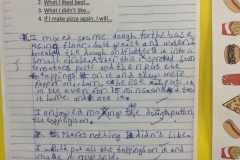 2. What I liked best...
3. What I didn't like...
4. If I make pizza again, I will...
1. I mixed some dough for the base
using flour, salt yeast and water. I
the dough and flattened it into a
small circle. After this I spread some
tomatoes paste and then put the
toppings on is and they were
in the oven for 15 mins and then I
it home and ate it.
2. I enjoyed making the dough putting
the toppings on.
3. There's nothing I didn't like.
4. I would put all the toppings on it and
make it my self.